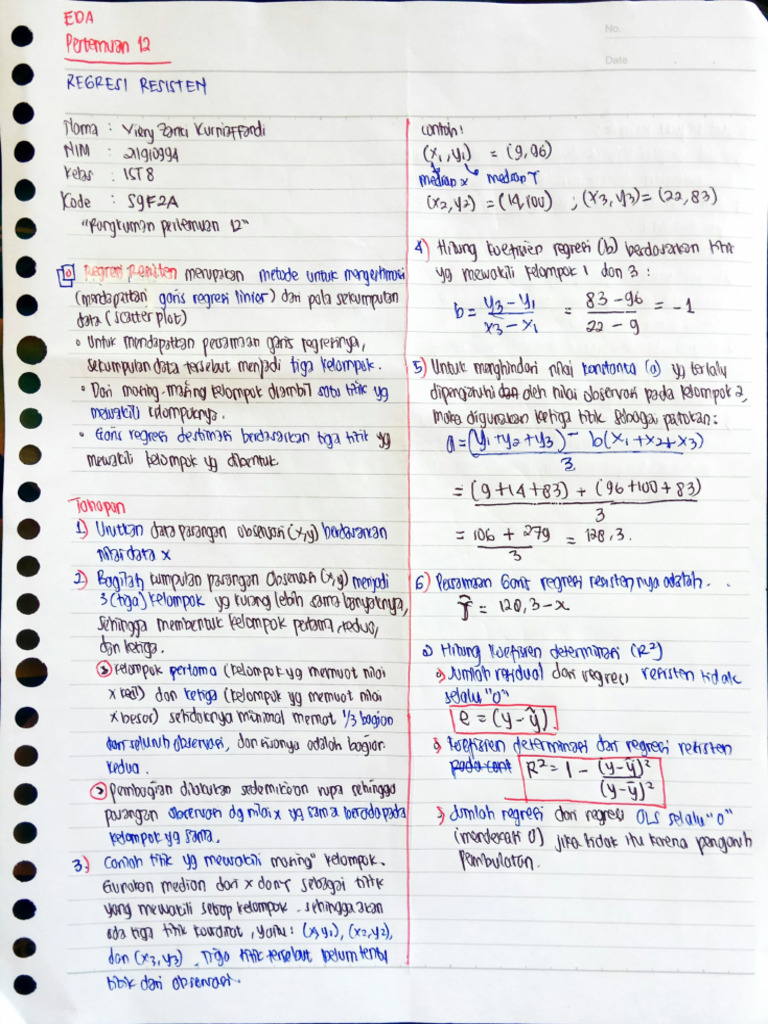 No.
Date
EDA
Pertemuan 12
REGRESI RESISTEN
Nama : Vieny Zanu Kurniaffandi
NIM : 21910994
Kelas : 1ST8
Kode : S9F2A
"Rangkuman pertemuan 12"
Regresi Resisten merupakan metode untuk mengestimasi
(mendapatkan garis regresi linier) dari pola sekumpulan
data (scatter plot)
• Untuk mendapatkan persamaan garis regresinya,
sekumpulan data tersebut menjadi tiga kelompok.
• Dari masing-masing kelompok diambil satu titik yg
mewakili kelompoknya.
• Garis regresi destimasi berdasarkan tiga titik yg
mewakili kelompok yg dibentuk
Tahapan
1) Urutkan data pasangan observasi (x,y) berdasarkan
nilai data x
2) Bagilah kumpulan pasangan observasi (x,y) menjadi
3 (tiga) kelompok yg kurang lebih sama banyaknya,
sehingga membentuk kelompok pertama, kedua,
dan ketiga.
kelompok pertama (kelompok yg memuat nilai
x kecil) dan ketiga (kelompok yg memuat nilai
x besar) setidaknya minimal memat 1/3 bagian
dari seluruh observasi, dan sisanya adalah bagian
kedua.
pembagian dilakukan sedemikian rupa sehingga
pasangan observasi dg nilai x yg sama berada pada
kelompok yg sama.
3) Carilah titik yg mewakili masing" kelompok.
Gunakan median dari x dan y sebagai titik
yang mewakili setiap kelompok. sehingga akan
ada tiga titik koordinat, yaitu: (x1,y1), (x2,y2),
dan (x3,y3). Tiga titik tersebut belum tentu
titik dari observasi.
contoh:
(x1, y1) = (9, 96)
median x median Y
(x2, y2) = (14, 100) ; (x3, y3) = (22, 83)
4) Hitung koefisien regresi (b) berdasarkan titik
yg mewakili kelompok 1 dan 3 :
b = y3 - y1 / x3 - x1 = 83 - 96 / 22 - 9 = -1
5) Untuk menghindari nilai konstanta (a) yg terlalu
dipengaruhi dan oleh nilai observasi pada kelompok 2,
maka digunakan ketiga titik sebagai patokan:
a = (y1 + y2 + y3) - b(x1 + x2 + x3) / 3
= (9 + 14 + 83) + (96 + 100 + 83) / 3
= 106 + 279 / 3 = 128,3.
6) Persamaan Garis regresi resistennya adalah. . .
Ŷ = 128,3 - x
Hitung koefisien determinasi (R²)
Jumlah residual dari regresi resisten tidak
selalu "0"
e = (y - ŷ)
Koefisien determinasi dari regresi resisten
R² = 1 - (y - ŷ)² / (y - ȳ)²
Jumlah regresi dari regresi OLS selalu "0"
(mendekati 0) jika tidak itu karena pengaruh
pembulatan.